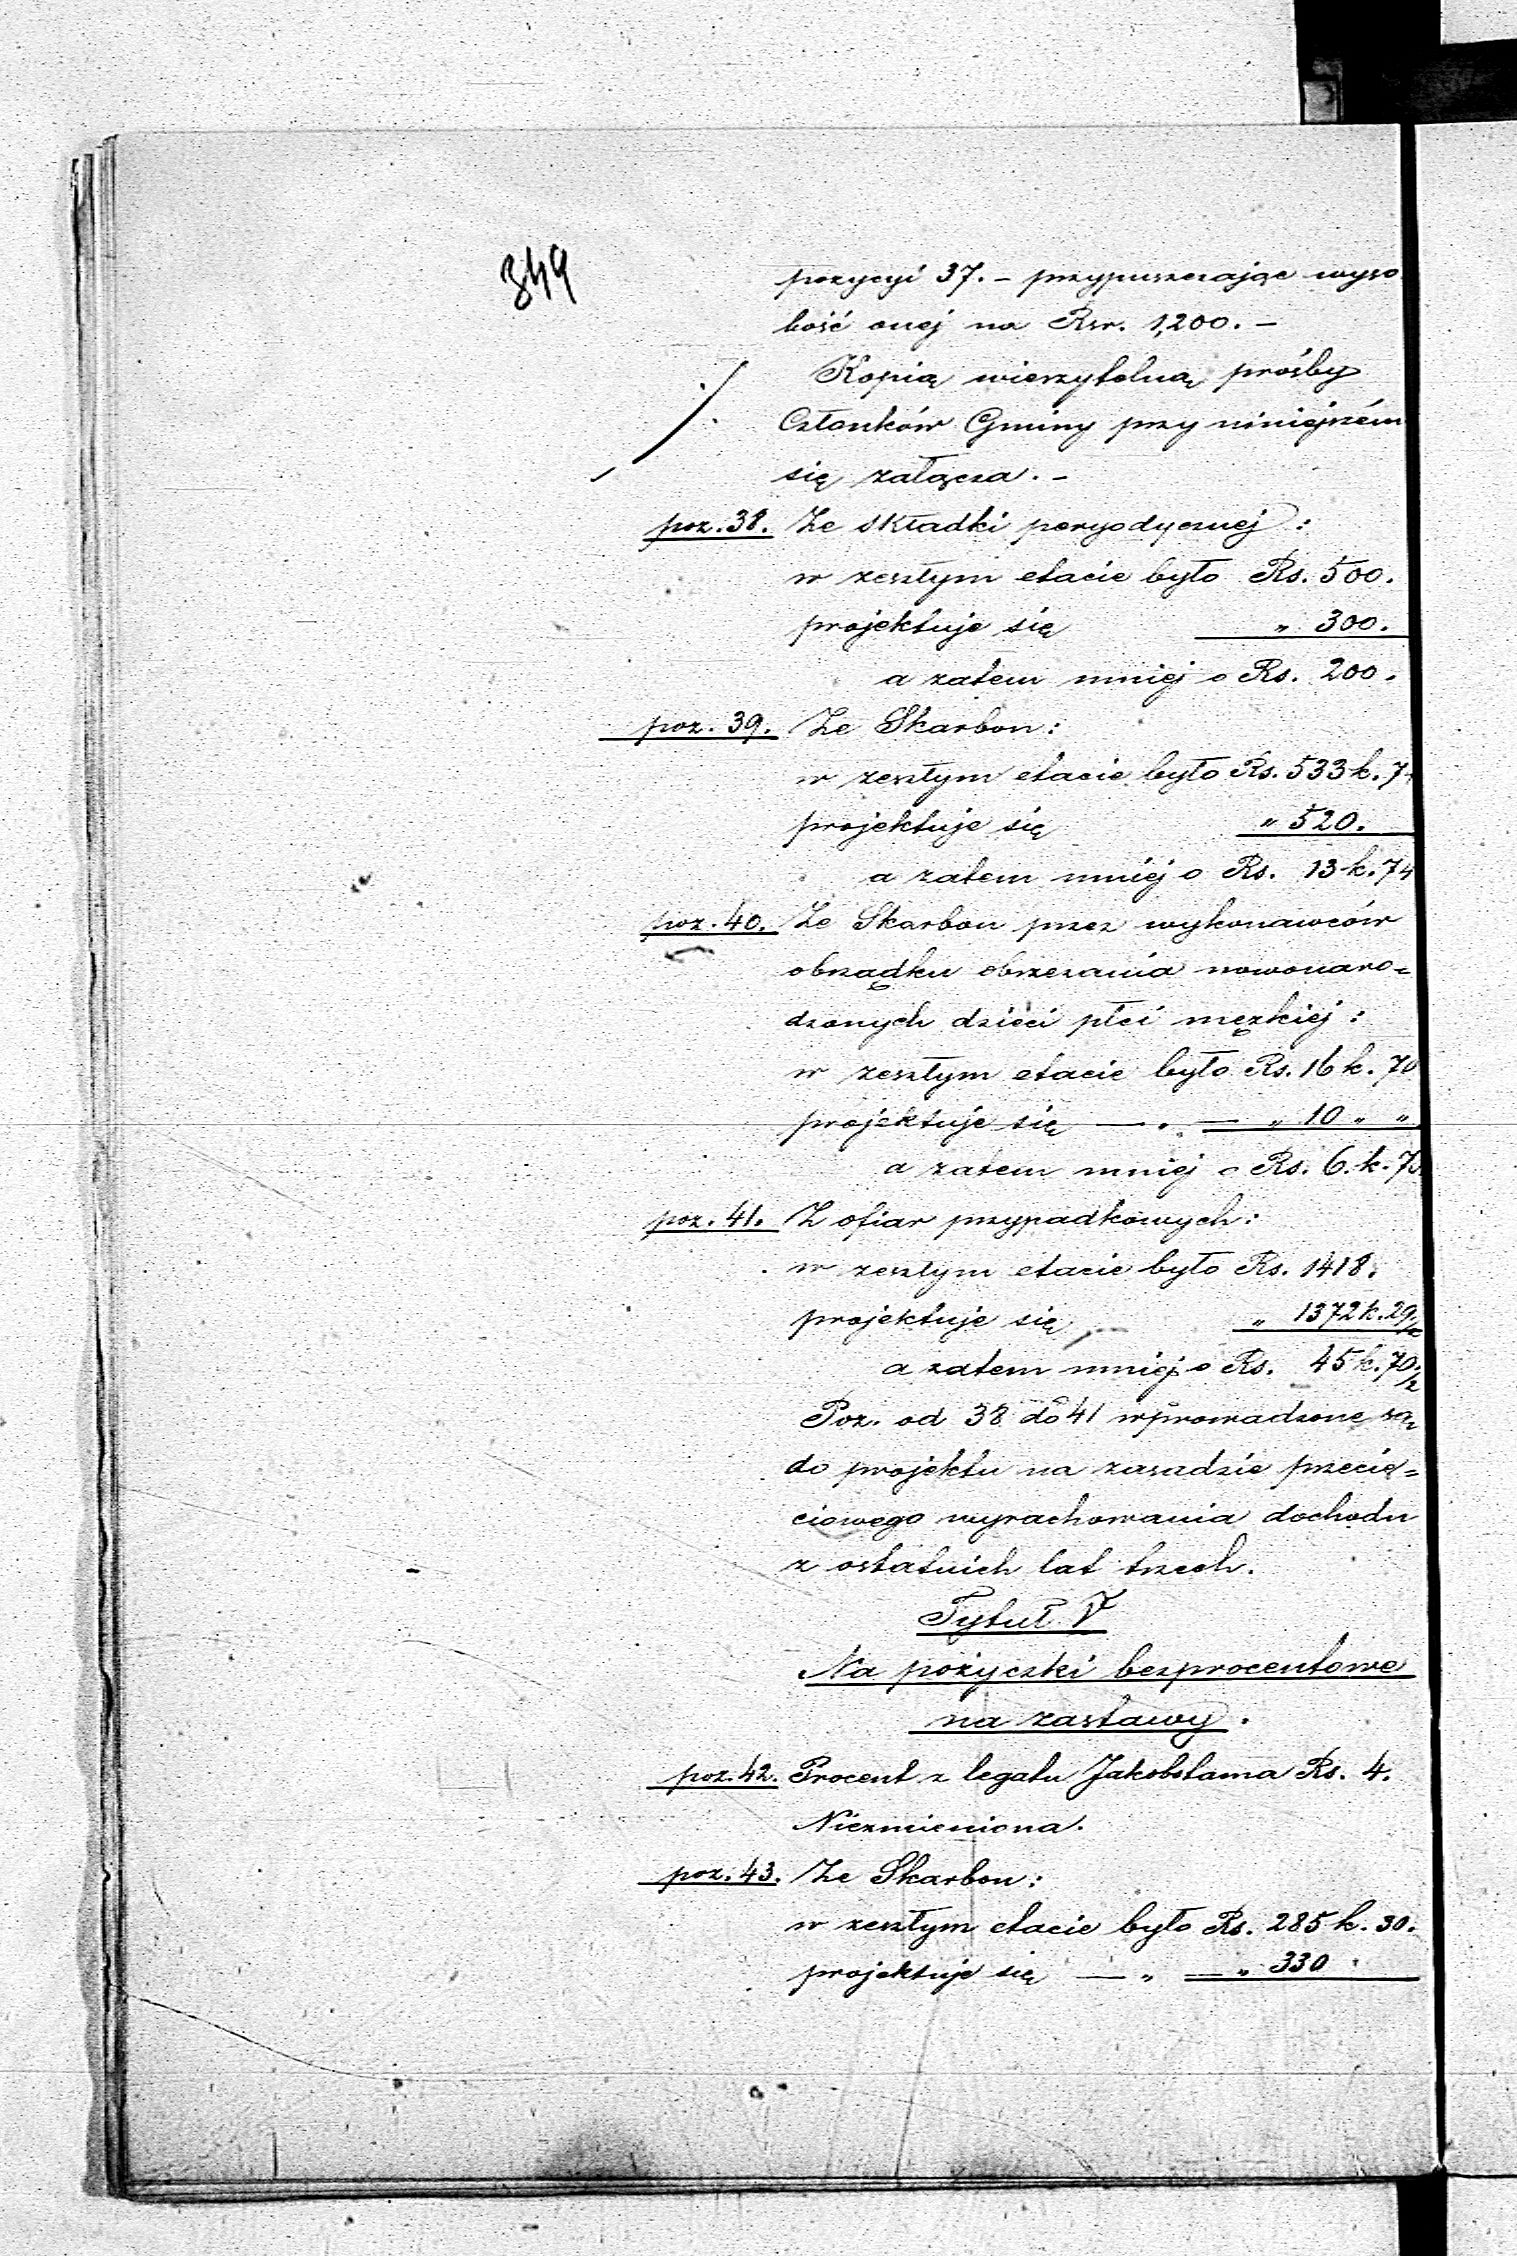 349
pozycyi 37. – przypuszczając wyso
kość onej na Rsr. 1,200. –
Kopią wierzytelną prośby
Członków Gminy przy niniejszém
się załącza. –
poz. 38. Ze składki peryodycznej:
w zeszłym etacie było Rs. 500.
projektuje się " 300.
a zatem mniej o Rs. 200.
poz. 39. Ze Skarbon:
w zeszłym etacie było Rs. 533 k. 74
projektuje się " 520.
a zatem mniej o Rs. 13 k. 74
poz. 40. Ze Skarbon przez wykonawców
obrządku obrzezania nowonaro=
dzonych dzieci płci męzkiej:
w zeszłym etacie było Rs. 16 k. 70
projektuje się — " — " 10 " "
a zatem mniej o Rs. 6. k. 70
poz. 41. Z ofiar przypadkowych:
w zeszłym etacie było Rs. 1418.
projektuje się " 1372 k. 29 1/2
a zatem mniej o Rs. 45 k. 70 1/2
Poz. od 38 do 41 wprowadzone są
do projektu na zasadzie przecię=
ciowego wyrachowania dochodu
z ostatnich lat trzech.
Tytuł V
Na pożyczki bezprocentowe
na zastawy.
poz. 42. Procent z legatu Jakobstama Rs. 4.
Niezmieniona.
poz. 43. Ze Skarbon:
w zeszłym etacie było Rs. 285 k. 30.
projektuje się — " — " 330